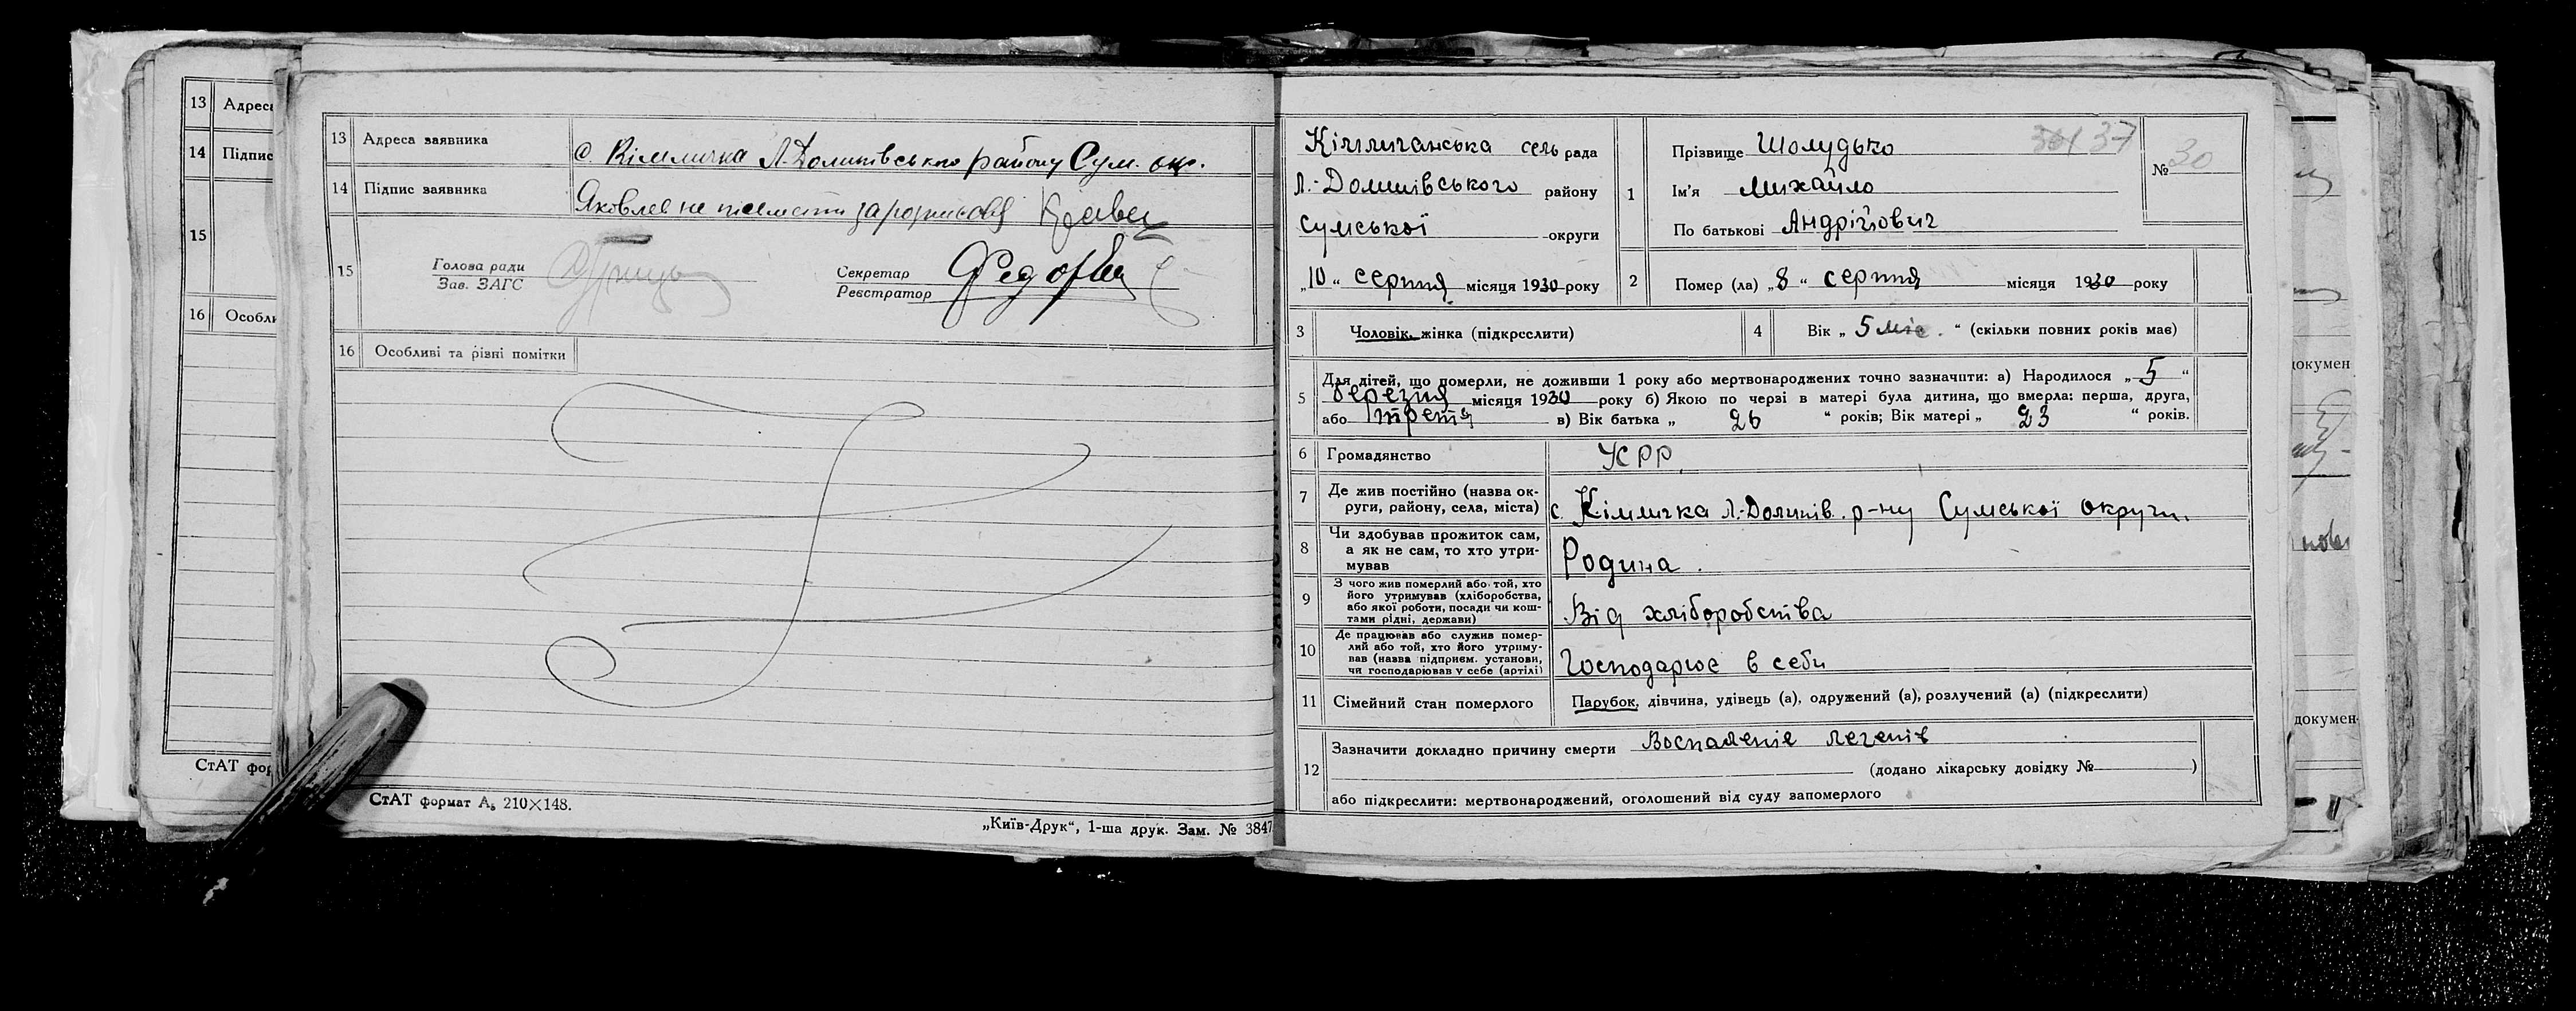 13 Адреса
14 Підпис
15
16 Особли
СтАТ фор
13 Адреса заявника с. Кімличка Л.-Долинівського району Сум. окр.
14 Підпис заявника Яковлєв не письмений за розписовсь Кравец
15 Голова ради
Зав. ЗАГС
Секретар
Реєстратор
16 Особливі та різні помітки
СтАТ формат А₅ 210×148.
„Київ-Друк“, 1-ша друк. Зам. № 3847
Кімличанська сель рада
Л.-Долинівського району
Сумської округи
„10“ серпня місяця 1930 року
1 Прізвище Шолудько 37
Ім'я Михайло
По батькові Андрійович
№ 30
2 Помер (ла) „8“ серпня місяця 1930 року
3 Чоловік, жінка (підкреслити)
4 Вік „5 міс.“ (скільки повних років має)
5 Для дітей, що померли, не доживши 1 року або мертвонароджених точно зазначити: а) Народилося „5“
березня місяця 1930 року б) Якою по черзі в матері була дитина, що вмерла: перша, друга,
або третя в) Вік батька „26“ років; Вік матері „23“ років.
6 Громадянство УСРР
7 Де жив постійно (назва ок-
руги, району, села, міста) с. Кімличка Л.-Долинів. р-ну Сумської округи.
8 Чи здобував прожиток сам,
а як не сам, то хто утри-
мував Родина.
9 З чого жив померлий або той, хто
його утримував (хліборобства,
або якої роботи, посади чи кош-
тами рідні, держави) Від хліборобства
10 Де працював або служив помер-
лий або той, хто його утриму-
вав (назва підприєм. установи,
чи господарював у себе (артілі) Господарює в себи
11 Сімейний стан померлого Парубок, дівчина, удівець (а), одружений (а), розлучений (а) (підкреслити)
12 Зазначити докладно причину смерти Воспаленіє легенів
(додано лікарську довідку № )
або підкреслити: мертвонароджений, оголошений від суду запомерлого
докумен
докумен-